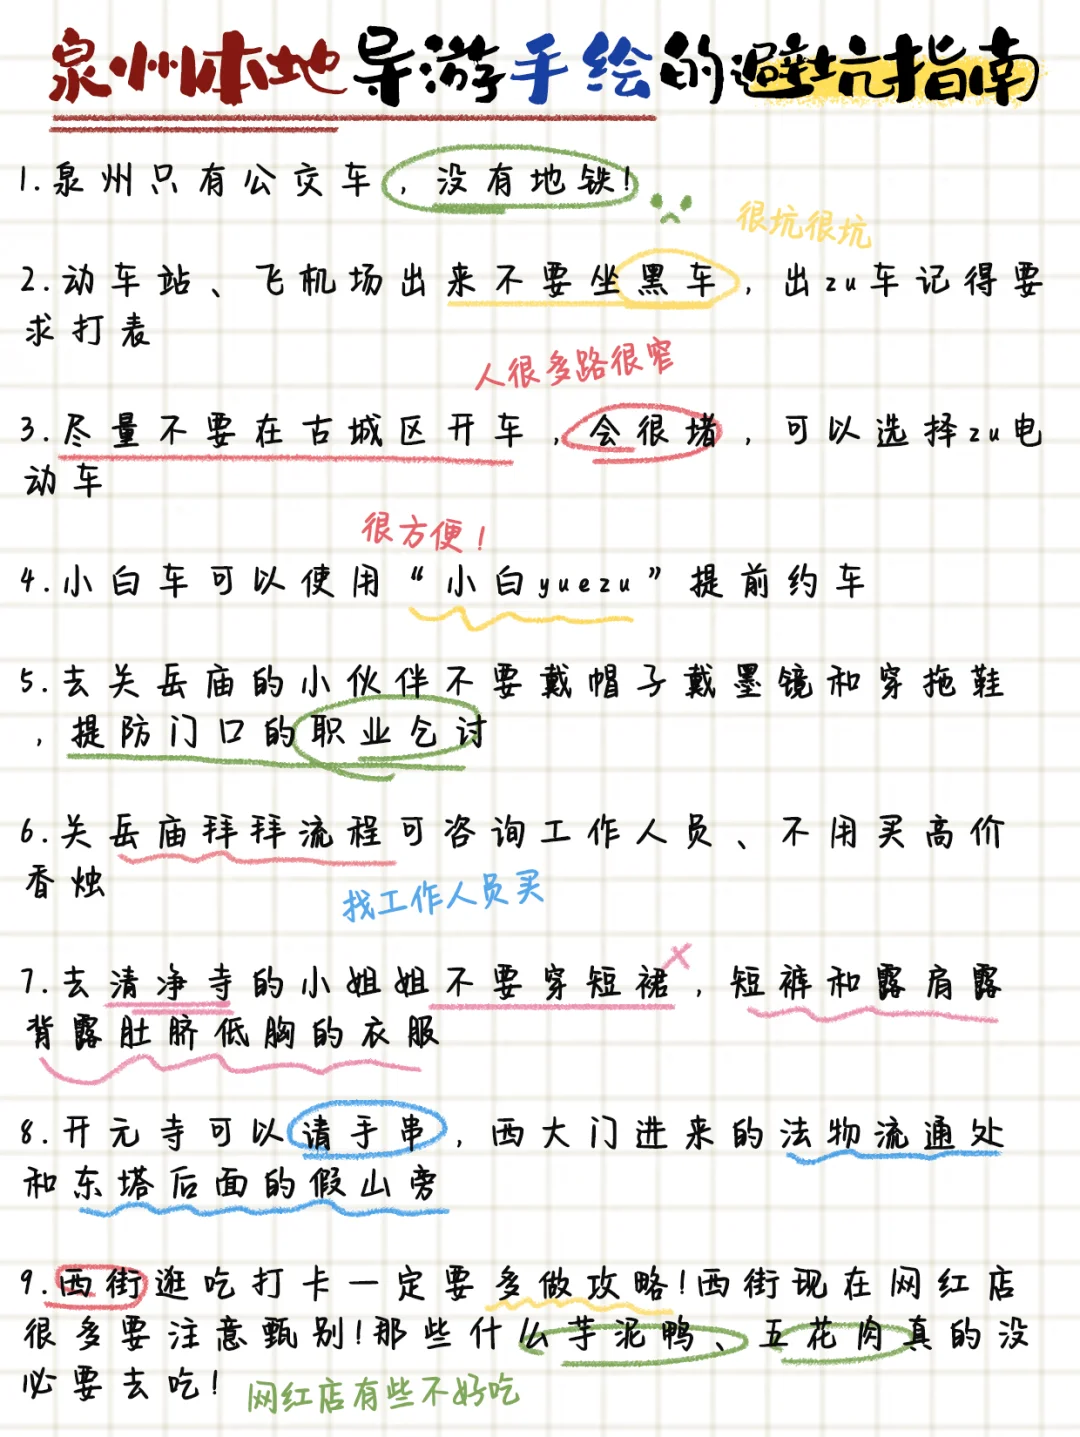 泉州本地导游手绘的避坑指南
1.泉州只有公交车，没有地铁!
很坑很坑
2.动车站、飞机场出来不要坐黑车，出zu车记得要
求打表
人很多路很窄
3.尽量不要在古城区开车，会很堵，可以选择zu电
动车
很方便！
4.小白车可以使用“小白yuezu”提前约车
5.去关岳庙的小伙伴不要戴帽子戴墨镜和穿拖鞋
，提防门口的职业乞讨
6.关岳庙拜拜流程可咨询工作人员、不用买高价
香烛
找工作人员买
7.去清净寺的小姐姐不要穿短裙，短裤和露肩露
背露肚脐低胸的衣服
8.开元寺可以请手串，西大门进来的法物流通处
和东塔后面的假山旁
9.西街逛吃打卡一定要多做攻略!西街现在网红店
很多要注意甄别!那些什么芋泥鸭、五花肉真的没
必要去吃!
网红店有些不好吃